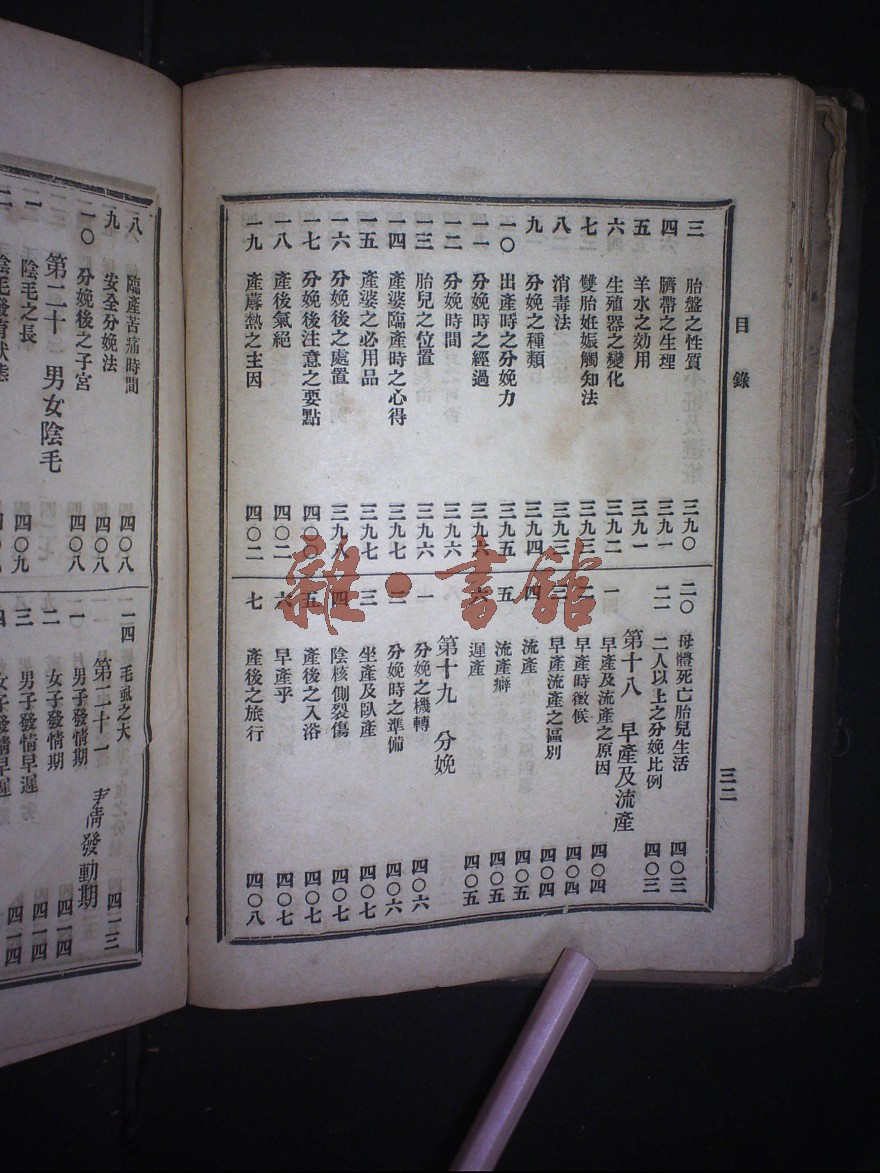 目錄
三二
三 胎盤之性質 三九〇
四 臍帶之生理 三九一
五 羊水之効用 三九一
六 生殖器之變化 三九二
七 雙胎姙娠觸知法 三九三
八 消毒法 三九三
九 分娩之種類 三九四
一〇 出產時之分娩力 三九五
一一 分娩時之經過 三九六
一二 分娩時間 三九六
一三 胎兒之位置 三九六
一四 產婆臨產時之心得 三九七
一五 產婆之必用品 三九七
一六 分娩後之處置 三九八
一七 分娩後注意之要點 四〇〇
一八 產後氣絕 四〇二
一九 產蓐熱之主因 四〇二
二〇 母體死亡胎兒生活 四〇三
二一 二人以上之分娩比例 四〇三
第十八 早產及流產
一 早產及流產之原因 四〇四
二 早產時徵候 四〇四
三 早產流產之區別 四〇四
四 流產 四〇五
五 流產癖 四〇五
六 遲產 四〇五
第十九 分娩
一 分娩之機轉 四〇六
二 分娩時之準備 四〇六
三 坐產及臥產 四〇七
四 陰核側裂傷 四〇七
五 產後之入浴 四〇七
六 早產乎 四〇七
七 產後之旅行 四〇八
八 臨產苦痛時間 四〇八
九 安全分娩法 四〇八
一〇 分娩後之子宮 四〇八
第二十 男女陰毛
一 陰毛之長 四〇九
二 陰毛發育狀態
一四 毛虱之大 四一三
第二十一 情發動期
一 男子發情期 四一四
二 女子發情期 四一四
三 男子發情早遲 四一四
四 女子發情早遲
雜·書館